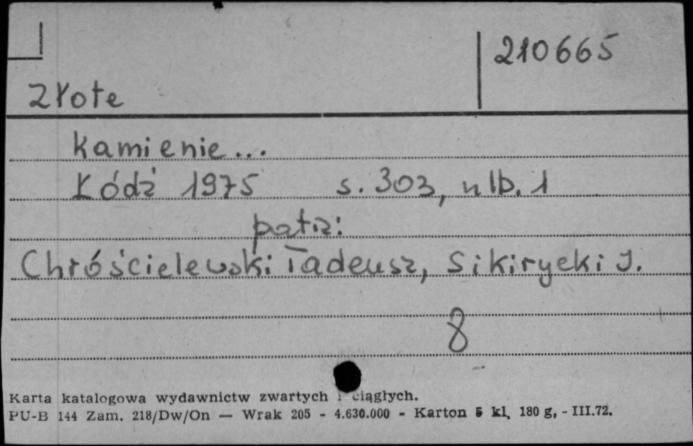 210665
Złote
kamienie...
Łódź 1975 s. 303, nlb. 1
patrz:
Chróścielewski Tadeusz, Sikirycki I.
8
Karta katalogowa wydawnictw zwartych i ciągłych.
PU-B 144 Zam. 218/Dw/On — Wrak 205 - 4.630.000 - Karton 5 kl. 180 g. - III.72.